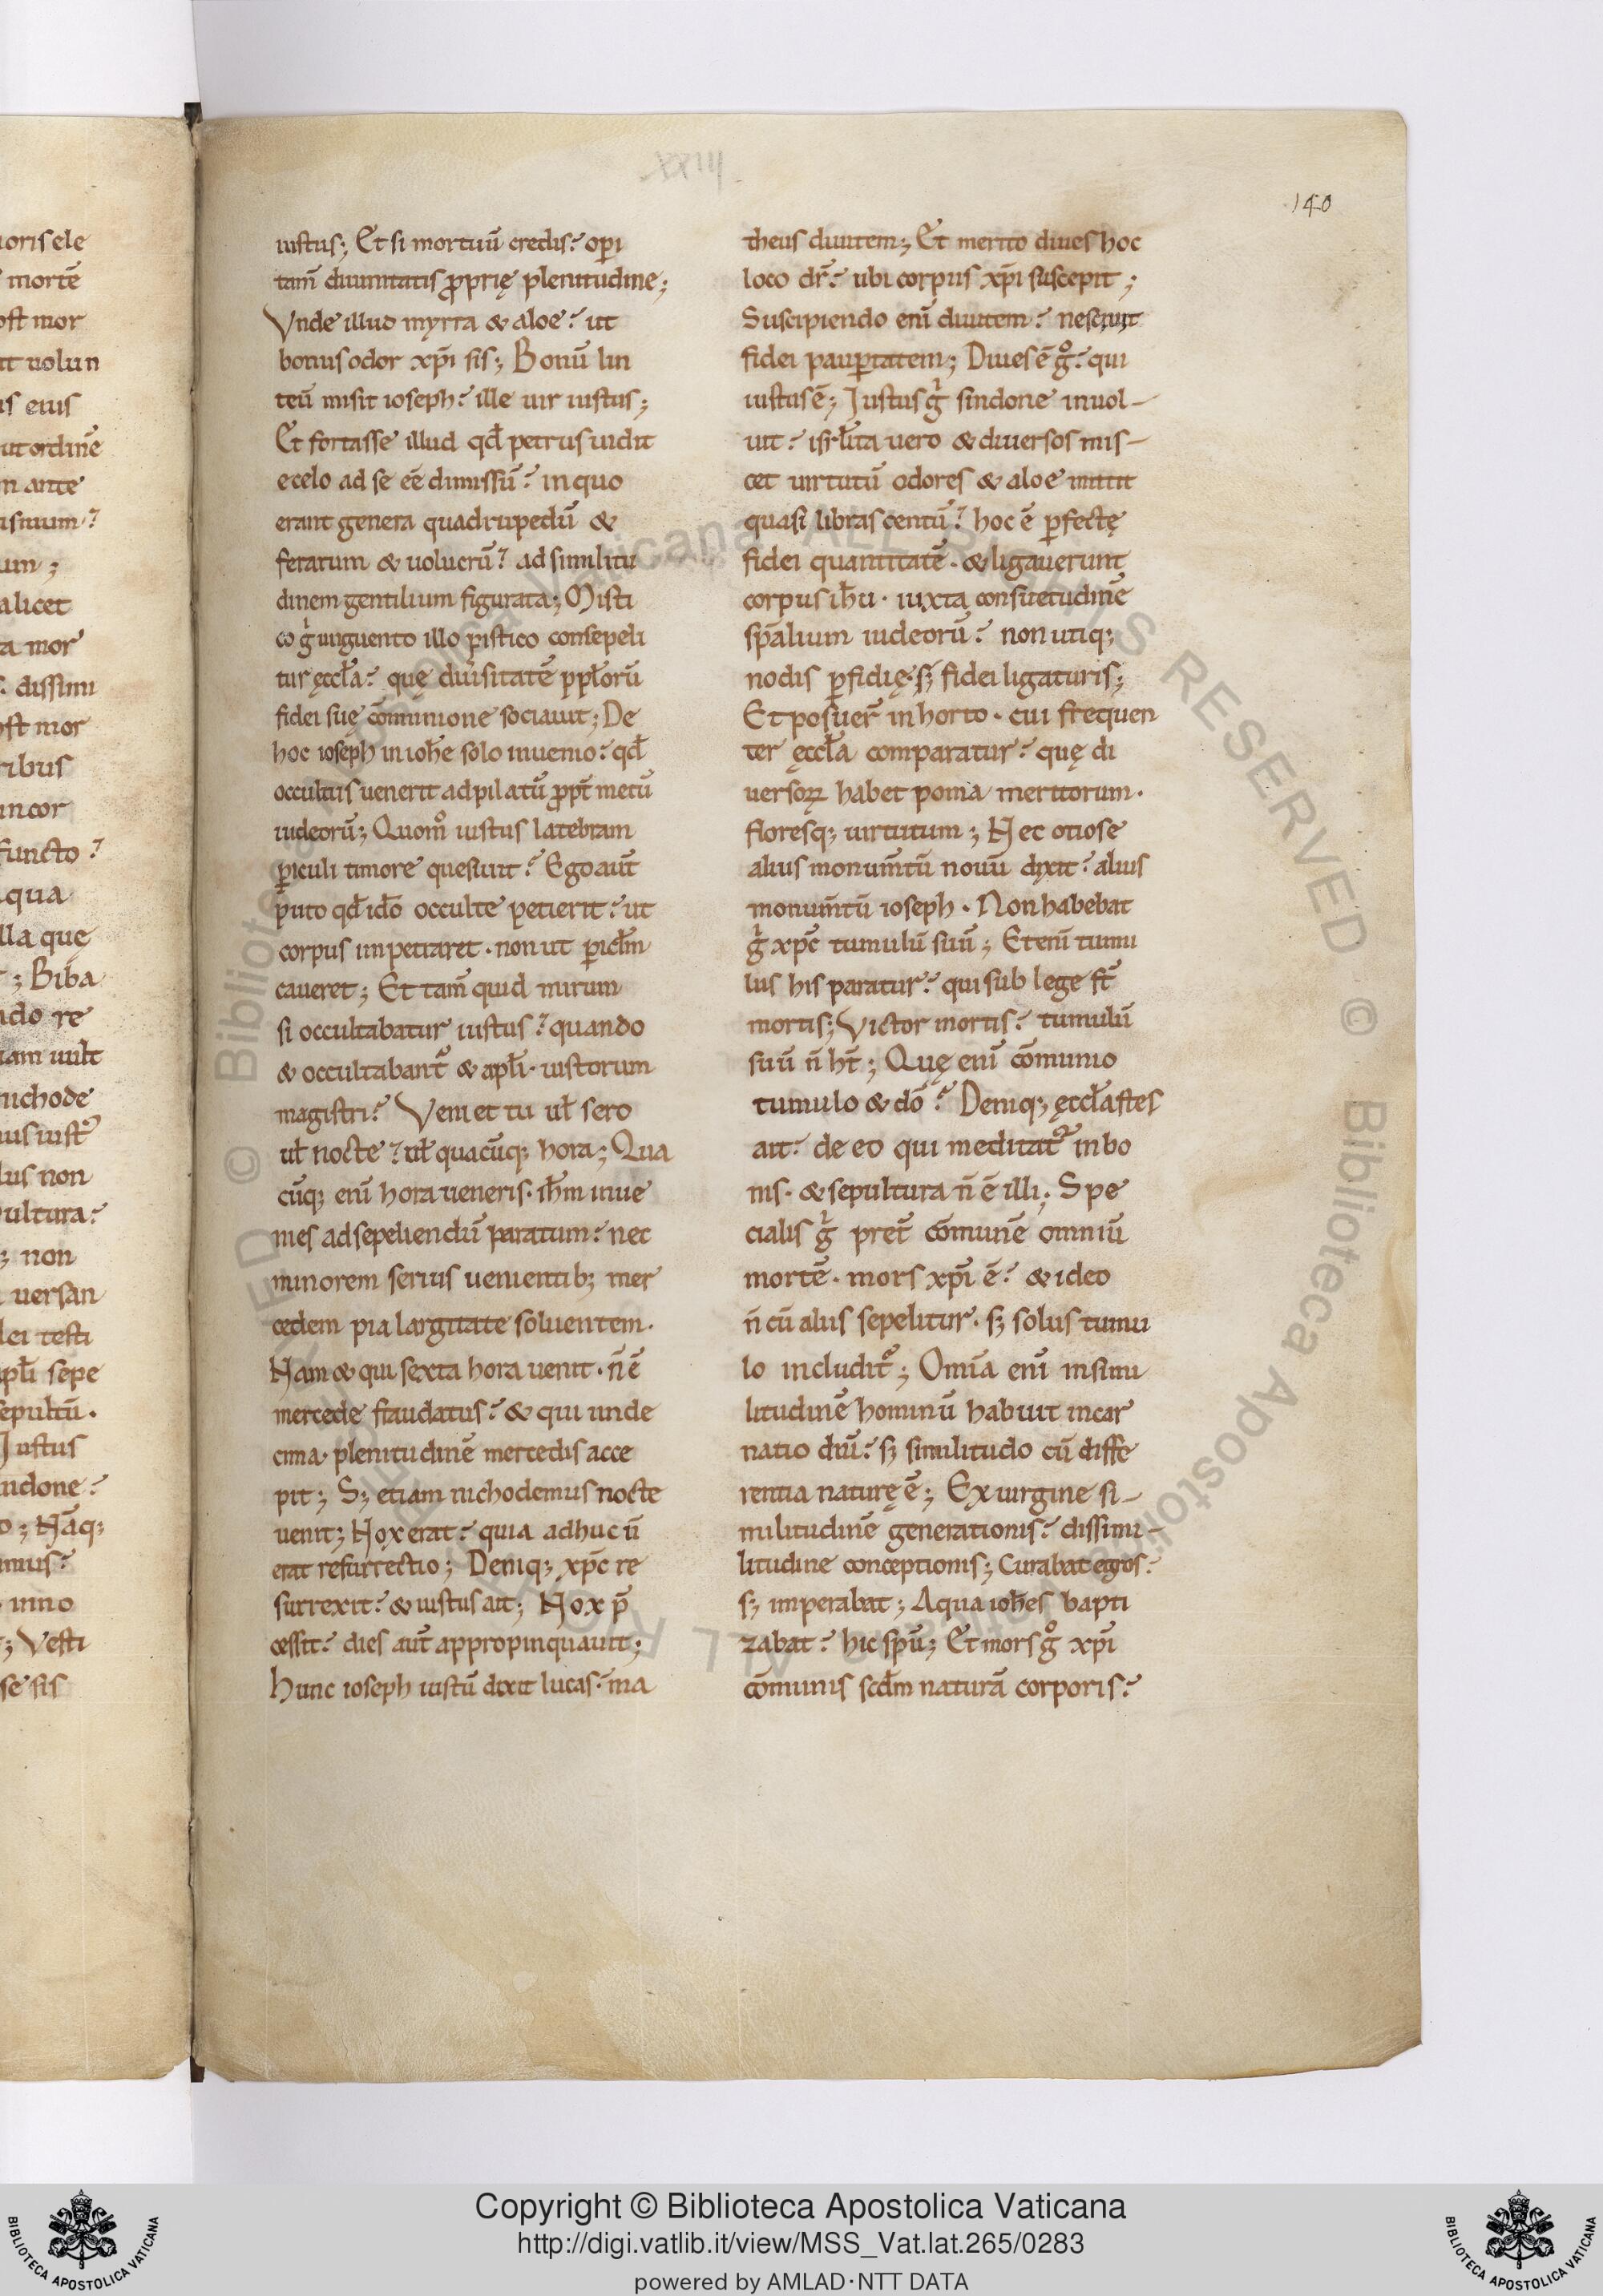 XXIII
140
oris ele
mortē
ost mor
it uolun
is eius
ut ordinē
n ante
um;
alicet
a mor
dissimi
ost mor
ribus
incor
functo?
qua
lla quę
; Biba
ndo re
uam uult
nichode
us iust᷒
lus non
ultura?
; non
uersan
lei testi
apłi sepe
sepultū.
Justus
indone?
o; Nāq;
imus?
inno
; Vesti
se sis
iustus; Et si mortuū credis? opi
tam̄ diuinitatis ꝓprię plenitudine;
Vnde illud myrra & aloe? ut
bonus odor xp̄i sis; Bonū lin
teū misit ioseph? ille uir iustus;
Et fortasse illud qđ petrus uidit
ecelo ad se eē dimissū? in quo
erant genera quadrupedū &
ferarum & uolucrū? ad similitu
dinem gentilium figurata; Misti
co gͥ unguento illo pistico consepeli
tur ęccła? quę diuͥsitatē ppłorū
fidei suę cōmunione sociauit; De
hoc ioseph in ioħe solo inuenio? qđ
occultus uenerit ad pilatū ꝓpt̄ metū
iudeorū; Quom̊ iustus latebram
ꝑiculi timore quesiuit? Ego aut̄
puto qđ ido̅ occulte petierit? ut
corpus impetraret. non ut ꝑicłm
caueret; Et tam̄ quid mirum
si occultabatur iustus? quando
& occultabant᷑ & apłi. iustorum
magistri? Veni et tu uł sero
uł nocte? uł quacūq; hora; Qua
cūq; enī hora ueneris. ihm̄ inue
nies ad sepeliendū paratum? nec
minorem seruis uenientib; mer
cedem pia largitate soluentem.
Nam & qui sexta hora uenit. n̄ ē
mercede fraudatus? & qui unde
cima. plenitudinē mercedis acce
pit; S; etiam nichodemus nocte
uenit; Nox erat? quia adhuc n̄
erat resurrectio; Deniq; xp̄c re
surrexit? & iustus ait; Nox p̄
cessit? dies aut̄ appropinquauit;
Hunc ioseph iustū dixit lucas? ma
theus diuitem; Et merito diues hoc
loco dr̄? ubi corpus xp̄i suscepit;
Suscipiendo enī diuitem? nesciuit
fidei pauꝑtatem; Diues ē g̊? qui
iustus ē; Justus gͥ sindone inuol-
uit? isrłita uero & diuersos mis-
cet uirtutū odores & aloe mittit
quasi libras centū? hoc ē ꝑfectę
fidei quantitatē. & ligauerunt
corpus ihu. iuxta consuetudinē
sp̄alium iudeorū? non utiq;
nodis ꝑfidię. s; fidei ligaturis;
Et posuer̄ in horto. cui frequen
ter ęccła comparatur? quę di
uersoꝝ habet poma meritorum.
floresq; uirtutum; Nec otiose
alius monum̄tū nouū dixit? alius
monum̄tū ioseph. Non habebat
gͥ xp̄c tumulū suū; Etenī tumu
lus his paratur? qui sub lege st̄
mortis; Victor mortis? tumulū
suū n̄ ht̄; Quę enī cōmunio
tumulo & do̅? Deniq; ęccłastes
ait? de eo qui meditat᷑ in bo
nis. & sepultura n̄ ē illi; Spe
cialis gͥ pret̄ cōmunē omniū
mortē. mors xp̄i ē? & ideo
n̄ cū aliis sepelitur. s; solus tumu
lo includit᷑; Omīa enī in simi
litudinē hominū habuit incar
natio dn̄i? s; similitudo cū diffe
rentia naturę ē; Ex uirgine si-
militudinē generationis? dissimi-
litudine conceptionis; Curabat egros?
s; imperabat; Aqua iohes bapti
zabat? hic spū; Et mors g̊ xp̄i
cōmunis scđm naturā corporis?
Copyright © Biblioteca Apostolica Vaticana
http://digi.vatlib.it/view/MSS_Vat.lat.265/0283
powered by AMLAD·NTT DATA
BIBLIOTECA APOSTOLICA VATICANA
BIBLIOTECA APOSTOLICA VATICANA